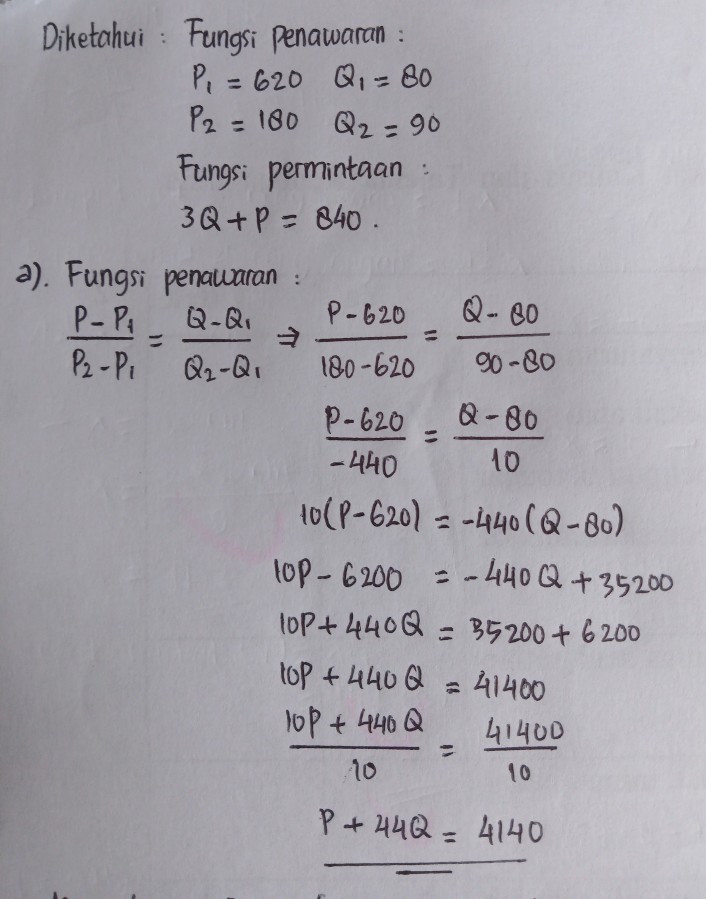 Diketahui : Fungsi penawaran :
P₁ = 620 Q₁ = 80
P₂ = 180 Q₂ = 90
Fungsi permintaan :
3Q + P = 840.
a). Fungsi penawaran :
(P - P₁)/(P₂ - P₁) = (Q - Q₁)/(Q₂ - Q₁) ⇒ (P - 620)/(180 - 620) = (Q - 80)/(90 - 80)
(P - 620)/(-440) = (Q - 80)/10
10(P - 620) = -440(Q - 80)
10P - 6200 = -440Q + 35200
10P + 440Q = 35200 + 6200
10P + 440Q = 41400
(10P + 440Q)/10 = 41400/10
P + 44Q = 4140